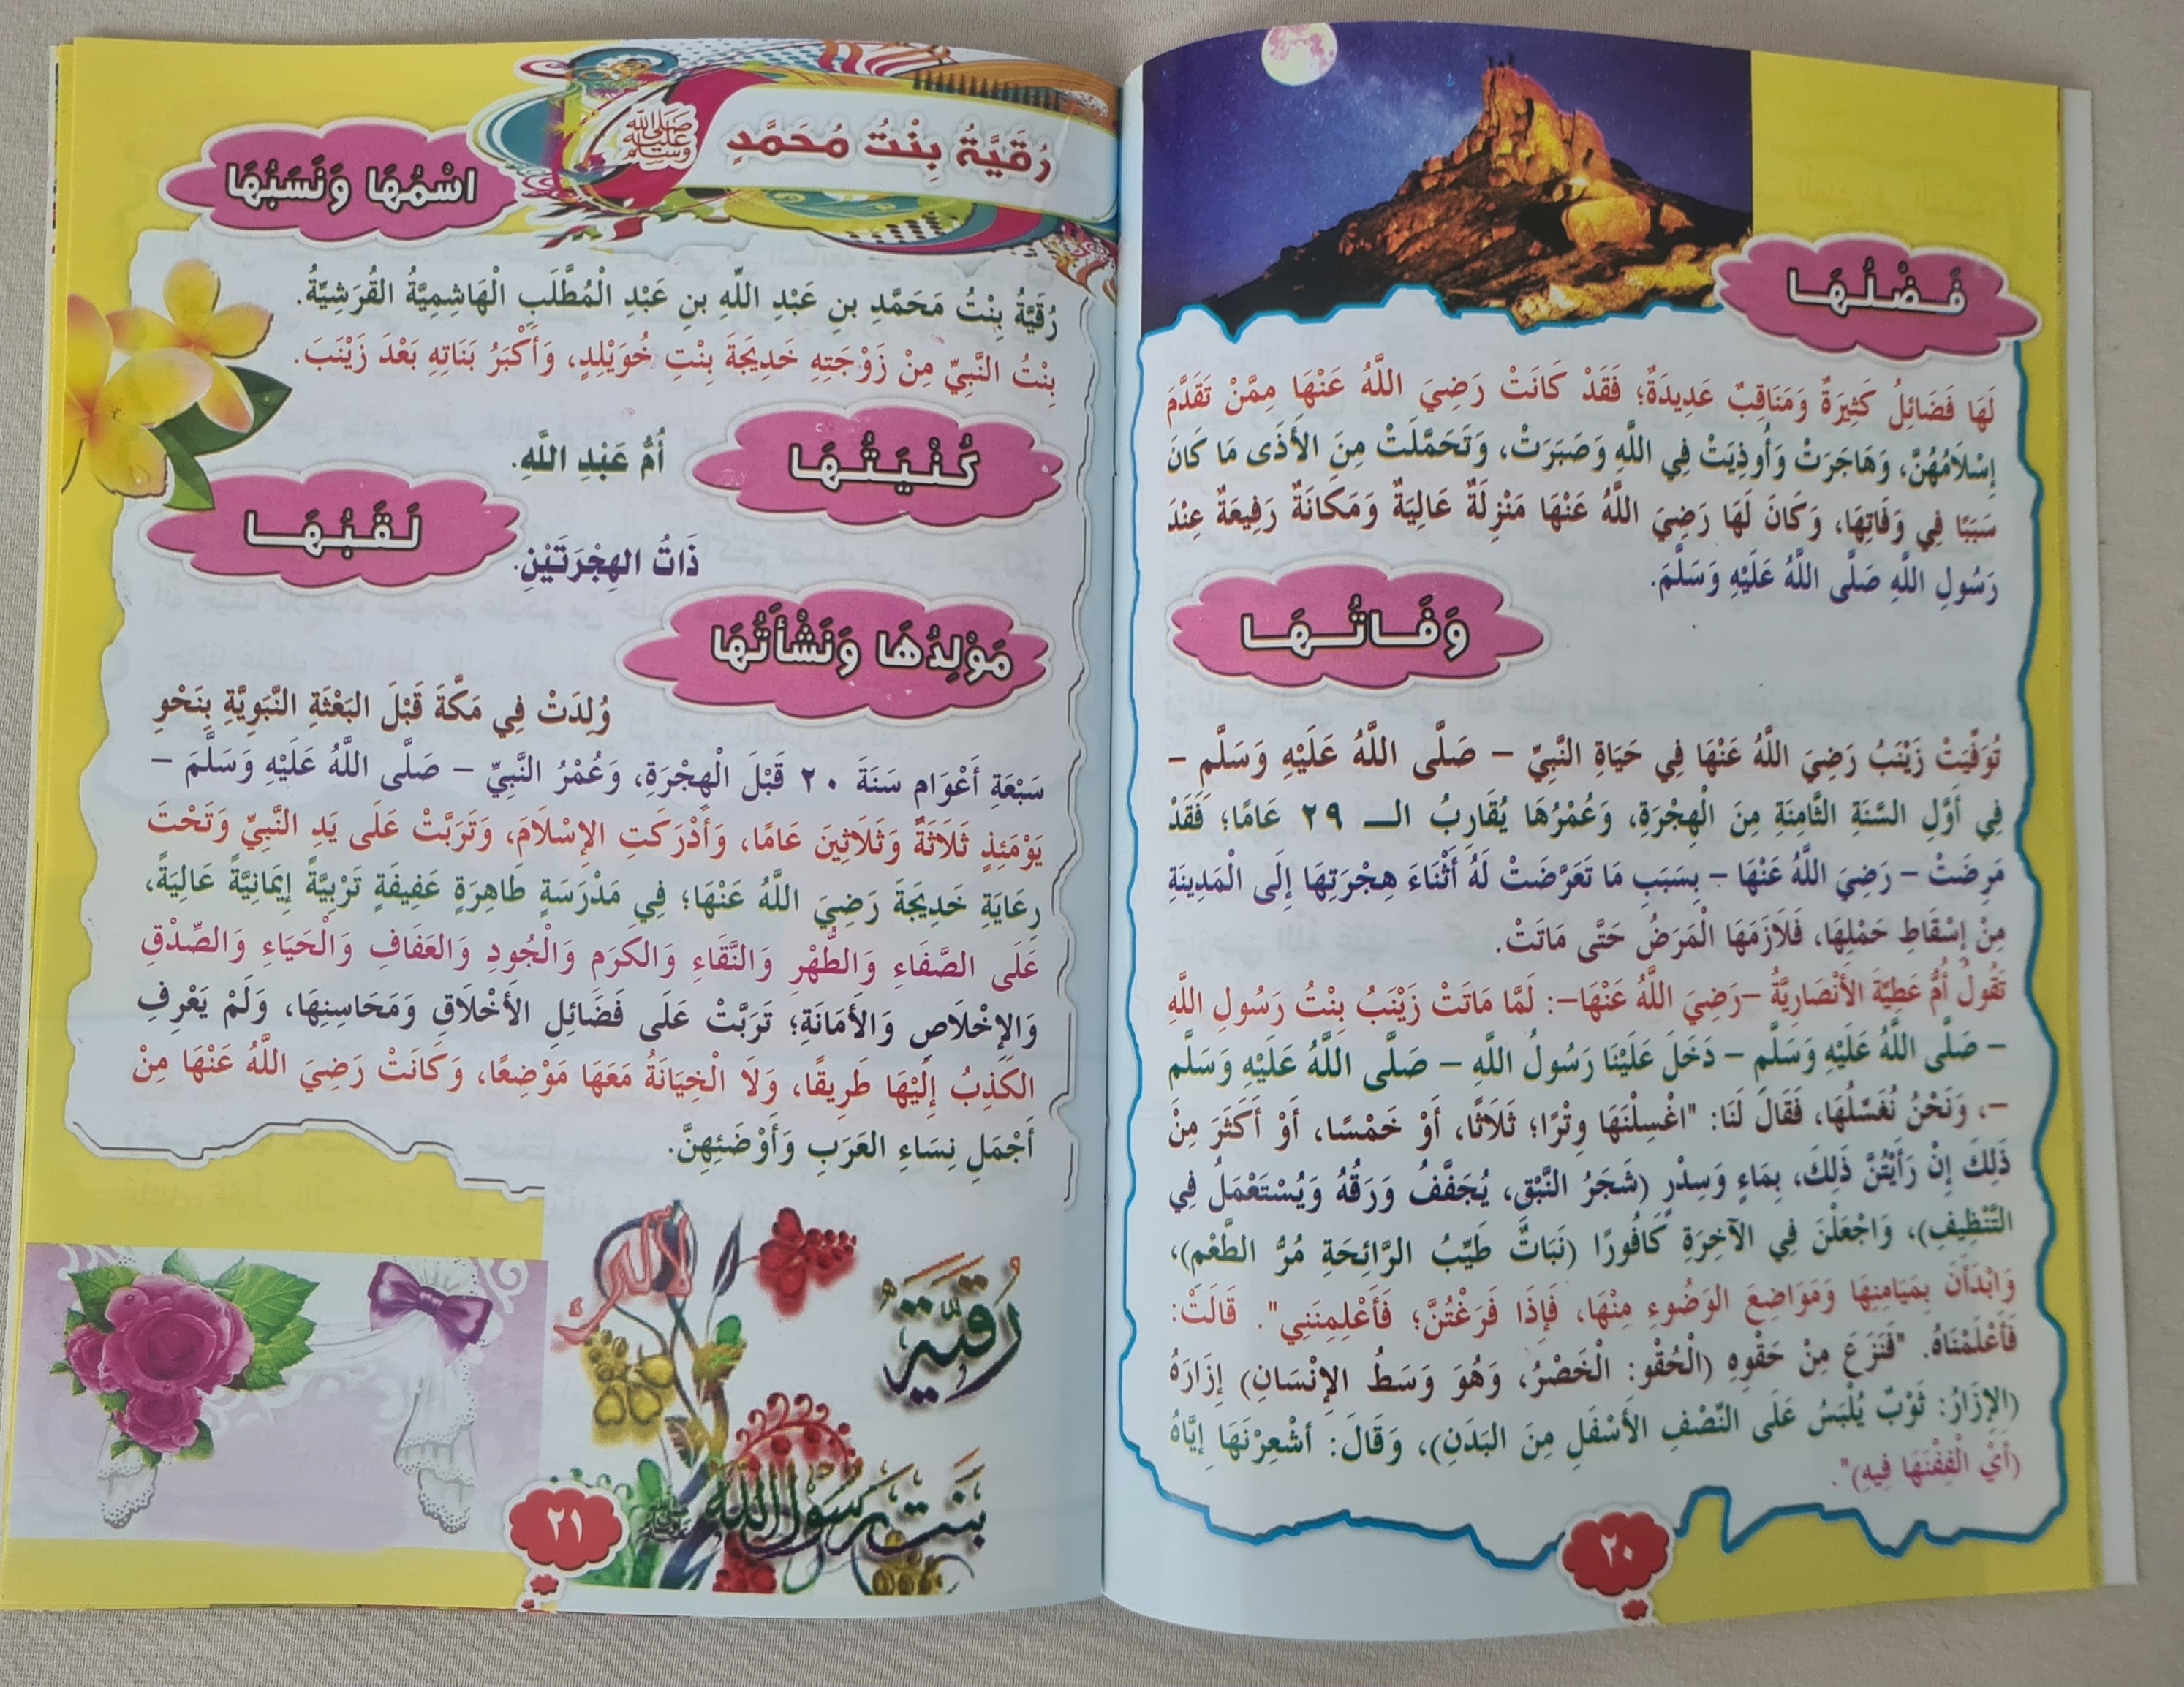 فَضْلُهَا
لَهَا فَضَائِلُ كَثِيرَةٌ وَمَنَاقِبُ عَدِيدَةٌ؛ فَقَدْ كَانَتْ رَضِيَ اللَّهُ عَنْهَا مِمَّنْ تَقَدَّمَ
إِسْلَامُهُنَّ، وَهَاجَرَتْ وَأُوذِيَتْ فِي اللَّهِ وَصَبَرَتْ، وَتَحَمَّلَتْ مِنَ الأَذَى مَا كَانَ
سَبَبًا فِي وَفَاتِهَا، وَكَانَ لَهَا رَضِيَ اللَّهُ عَنْهَا مَنْزِلَةٌ عَالِيَةٌ وَمَكَانَةٌ رَفِيعَةٌ عِنْدَ
رَسُولِ اللَّهِ صَلَّى اللَّهُ عَلَيْهِ وَسَلَّمَ.
وَفَاتُهَا
تُوَفِّيَتْ زَيْنَبُ رَضِيَ اللَّهُ عَنْهَا فِي حَيَاةِ النَّبِيِّ – صَلَّى اللَّهُ عَلَيْهِ وَسَلَّم –
فِي أَوَّلِ السَّنَةِ الثَّامِنَةِ مِنَ الْهِجْرَةِ، وَعُمْرُهَا يُقَارِبُ الـ ٢٩ عَامًا؛ فَقَدْ
مَرِضَتْ – رَضِيَ اللَّهُ عَنْهَا – بِسَبَبِ مَا تَعَرَّضَتْ لَهُ أَثْنَاءَ هِجْرَتِهَا إِلَى الْمَدِينَةِ
مِنْ إِسْقَاطِ حَمْلِهَا، فَلَازَمَهَا الْمَرَضُ حَتَّى مَاتَتْ.
تَقُولُ أُمُّ عَطِيَّةَ الأَنْصَارِيَّةُ –رَضِيَ اللَّهُ عَنْهَا–: لَمَّا مَاتَتْ زَيْنَبُ بِنْتُ رَسُولِ اللَّهِ
– صَلَّى اللَّهُ عَلَيْهِ وَسَلَّم – دَخَلَ عَلَيْنَا رَسُولُ اللَّهِ – صَلَّى اللَّهُ عَلَيْهِ وَسَلَّم
–، وَنَحْنُ نُغَسِّلُهَا، فَقَالَ لَنَا: "اغْسِلْنَهَا وِتْرًا؛ ثَلَاثًا، أَوْ خَمْسًا، أَوْ أَكْثَرَ مِنْ
ذَلِكَ إِنْ رَأَيْتُنَّ ذَلِكَ، بِمَاءٍ وَسِدْرٍ (شَجَرُ النَّبْقِ، يُجَفَّفُ وَرَقُهُ وَيُسْتَعْمَلُ فِي
التَّنْظِيفِ)، وَاجْعَلْنَ فِي الآخِرَةِ كَافُورًا (نَبَاتٌ طَيِّبُ الرَّائِحَةِ مُرُّ الطَّعْم)،
وَابْدَأْنَ بِمَيَامِنِهَا وَمَوَاضِعَ الوَضُوءِ مِنْهَا، فَإِذَا فَرَغْتُنَّ؛ فَأَعْلِمِنَنِي". قَالَتْ:
فَأَعْلَمْنَاهُ. "فَنَزَعَ مِنْ حَقْوِهِ (الْحُقْو: الْخَصْرُ، وَهُوَ وَسَطُ الإِنْسَانِ) إِزَارَهُ
(الإِزَارُ: ثَوْبٌ يُلْبَسُ عَلَى النِّصْفِ الأَسْفَلِ مِنَ البَدَنِ)، وَقَالَ: أَشْعِرْنَهَا إِيَّاهُ
(أَيْ الْفِفْنَهَا فِيهِ)".
٢٠
رُقَيَّةُ بِنْتُ مُحَمَّدٍ صَلَّى اللَّه عَلَيْهِ وَسَلَّم
اسْمُهَا وَنَسَبُهَا
رُقَيَّةُ بِنْتُ مَحَمَّدِ بنِ عَبْدِ اللَّهِ بنِ عَبْدِ الْمُطَّلَبِ الْهَاشِمِيَّةُ القُرَشِيَّةُ.
بِنْتُ النَّبِيِّ مِنْ زَوْجَتِهِ خَدِيجَةَ بِنْتِ خُوَيْلِدٍ، وَأَكْبَرُ بَنَاتِهِ بَعْدَ زَيْنَبَ.
كُنْيَتُهَا
أُمُّ عَبْدِ اللَّهِ.
لَقَبُهَا
ذَاتُ الهِجْرَتَيْنِ.
مَوْلِدُهَا وَنَشْأَتُهَا
وُلِدَتْ فِي مَكَّةَ قَبْلَ البَعْثَةِ النَّبَوِيَّةِ بِنَحْوِ
سَبْعَةِ أَعْوَام سَنَةَ ٢٠ قَبْلَ الْهِجْرَةِ، وَعُمْرُ النَّبِيِّ – صَلَّى اللَّهُ عَلَيْهِ وَسَلَّمَ –
يَوْمَئِذٍ ثَلَاثَةٌ وَثَلَاثِينَ عَامًا، وَأَدْرَكَتِ الإِسْلَامَ، وَتَرَبَّتْ عَلَى يَدِ النَّبِيِّ وَتَحْتَ
رِعَايَةِ خَدِيجَةَ رَضِيَ اللَّهُ عَنْهَا؛ فِي مَدْرَسَةٍ طَاهِرَةٍ عَفِيفَةٍ تَرْبِيَّةً إِيمَانِيَّةً عَالِيَةً،
عَلَى الصَّفَاءِ وَالطُّهْرِ وَالنَّقَاءِ وَالكَرَم وَالْجُودِ وَالعَفَافِ وَالْحَيَاءِ وَالصِّدْقِ
وَالإِخْلَاصِ وَالأَمَانَةِ؛ تَرَبَّتْ عَلَى فَضَائِلِ الأَخْلَاقِ وَمَحَاسِنِهَا، وَلَمْ يَعْرِفِ
الكَذِبُ إِلَيْهَا طَرِيقًا، وَلَا الْخِيَانَةُ مَعَهَا مَوْضِعًا، وَكَانَتْ رَضِيَ اللَّهُ عَنْهَا مِنْ
أَجْمَلِ نِسَاءِ العَرَبِ وَأَوْضَئِهِنَّ.
رُقَيَّة
بنت رسول الله
٢١